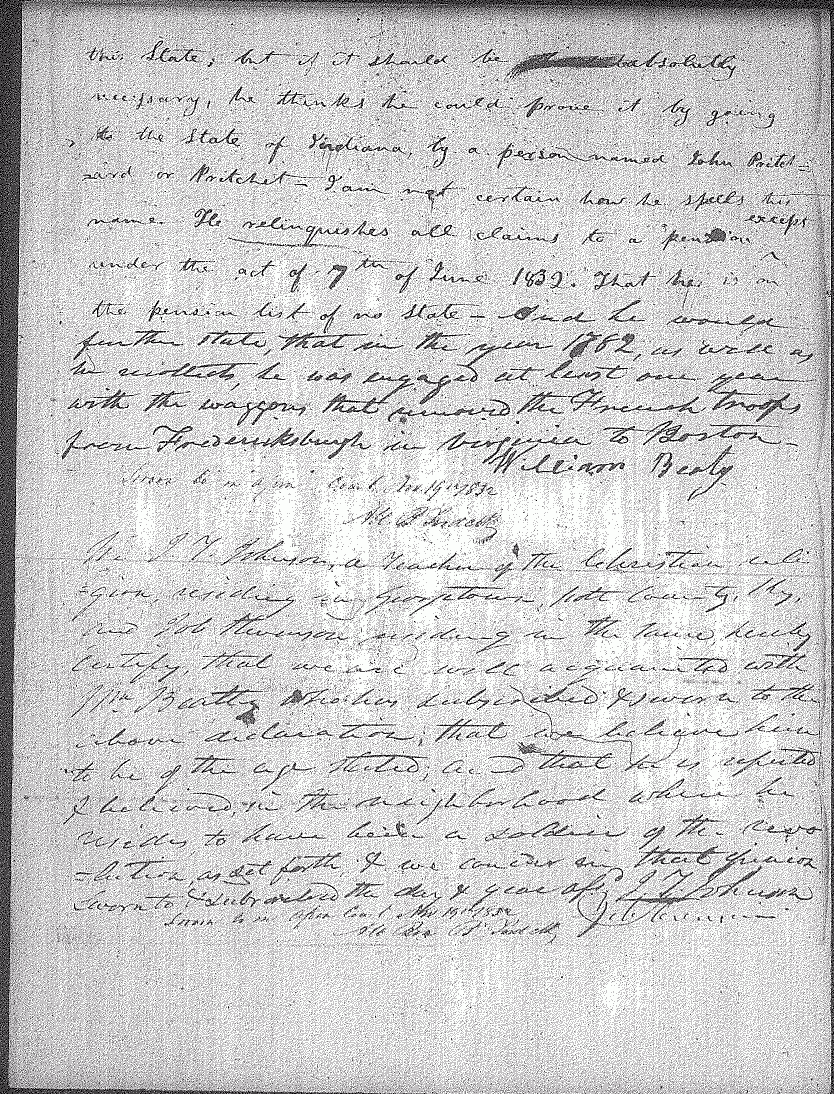 this State; but if it should be absolutely
necessary, he thinks he could prove it by going
to the State of Indiana, by a person named John Pritch-
ard or Pritchet – I am not certain how he spells his
name. He relinquishes all claims to a pension except
under the act of 7th of June 1832. That he is on
the pension list of no State – And he would
further state, that in the year 1782, as well as
he recollects, he was engaged at least one year
with the waggons that removed the French troops
from Fredericksburgh in Virginia to Boston –
William Beaty
Sworn to in open Court Nov. 19th 1832
We J. T. Johnson, a Teacher of the Christian reli
=gion, residing in Georgetown, Scott County, Ky,
and Job Stevenson residing in the same, hereby
Certify, that we are well acquainted with
Mr Beatty who has subscribed & sworn to the
above declaration; that we believe him
to be of the age stated; and that he is reputed
& believed, in the neighborhood where he
resides, to have been a soldier of the revo
=lution, as set forth, & we concur in that opinion
Sworn to & subscribed the day & year afs J T Johnson
Sworn to in open Court Nov 19th 1832
Job Stevenson